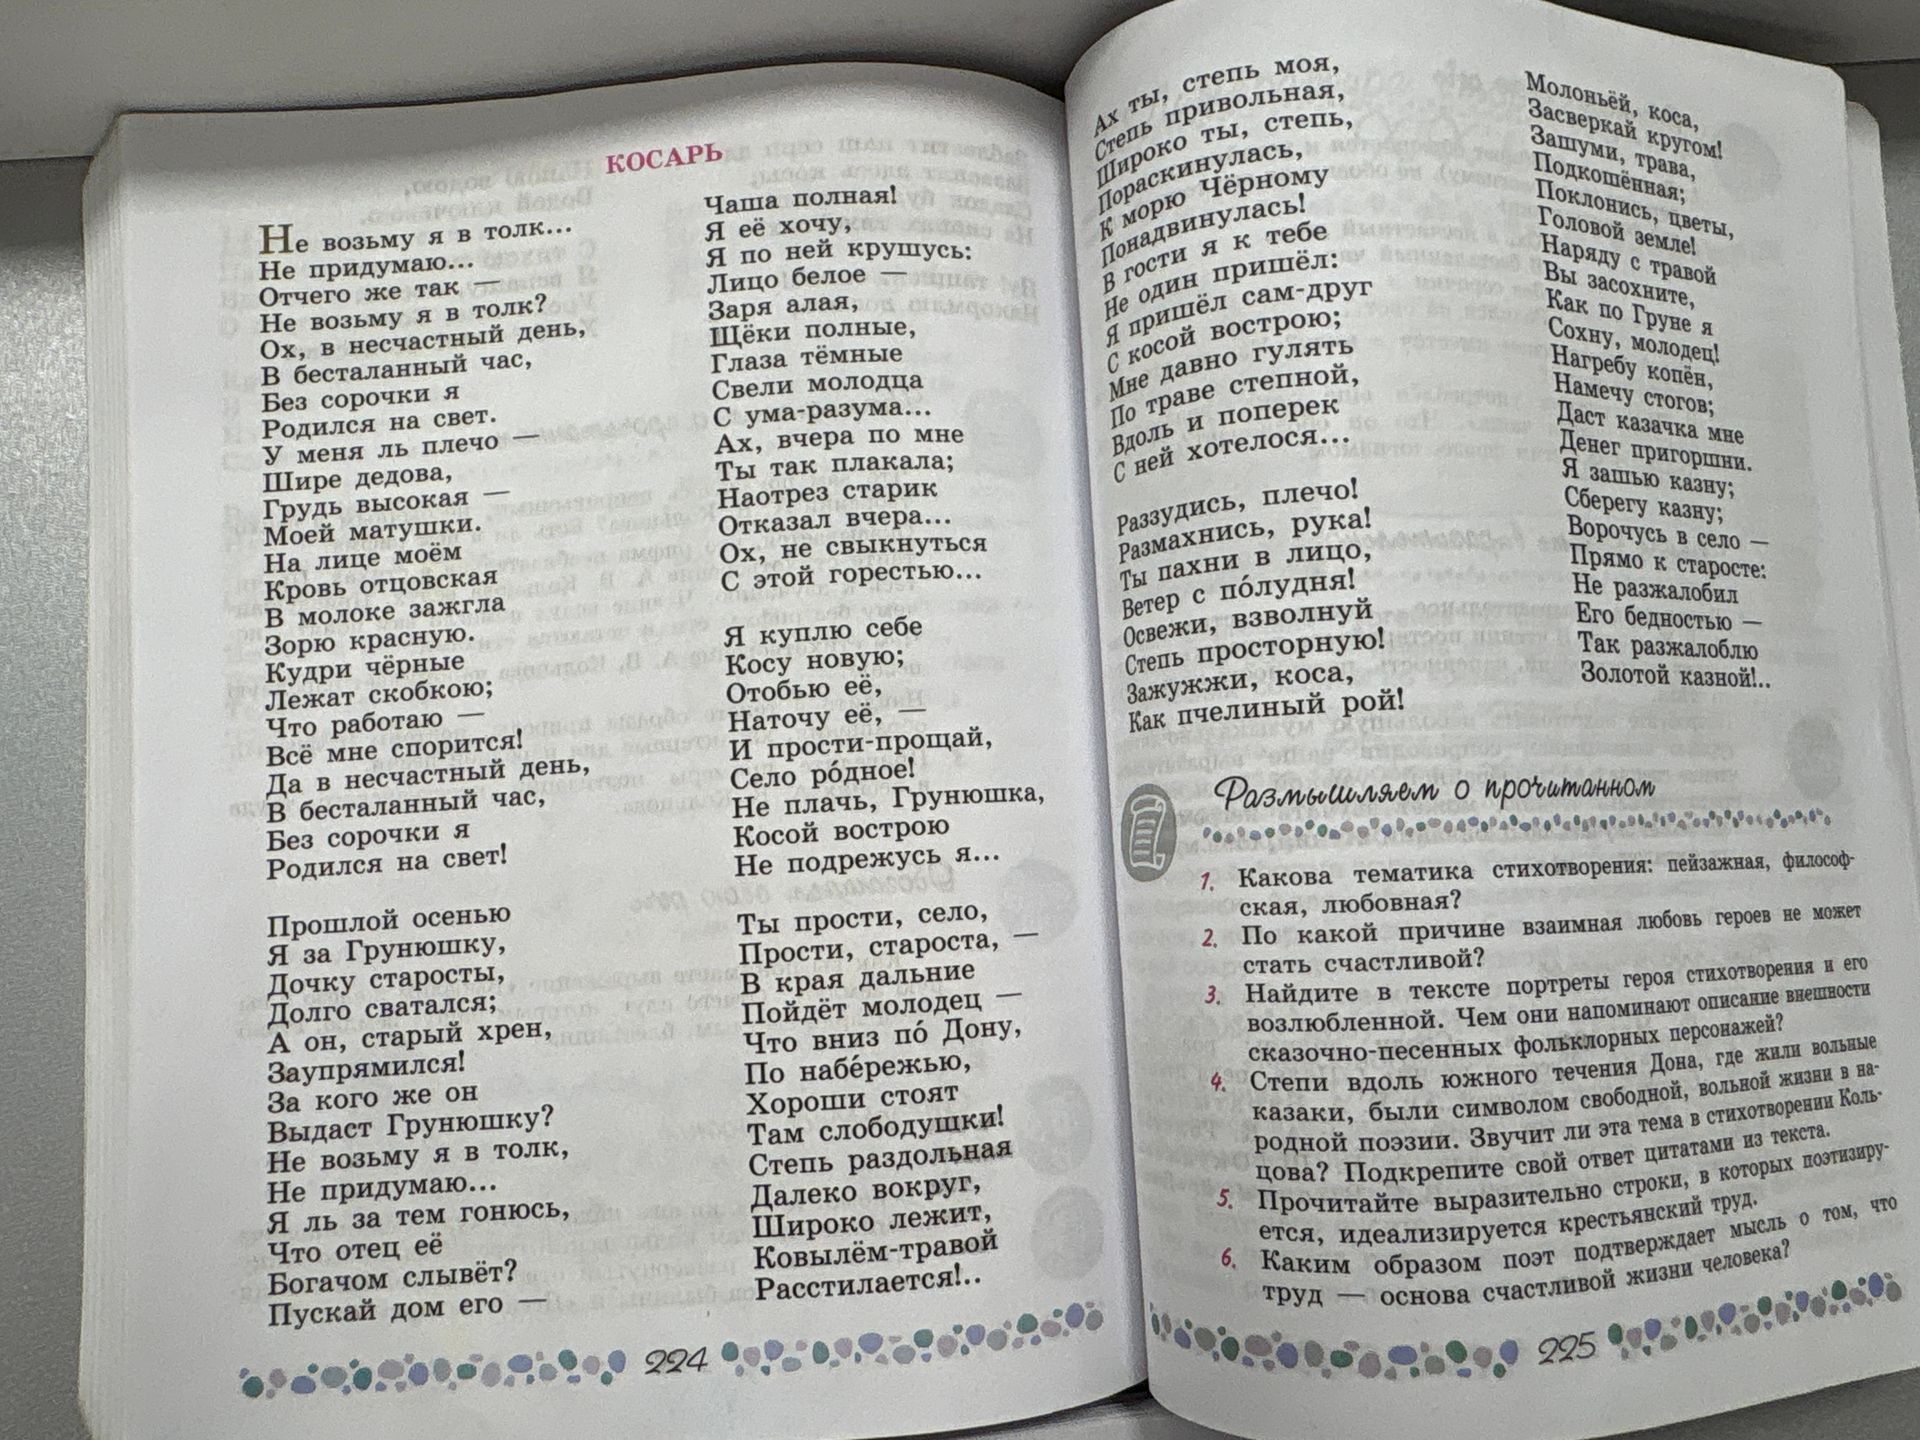 КОСАРЬ
Не возьму я в толк...
Не придумаю...
Отчего же так —
Не возьму я в толк?
Ох, в несчастный день,
В бесталанный час,
Без сорочки я
Родился на свет.
У меня ль плечо —
Шире дедова,
Грудь высокая —
Моей матушки.
На лице моём
Кровь отцовская
В молоке зажгла
Зорю красную.
Кудри чёрные
Лежат скобкою;
Что работаю —
Всё мне спорится!
Да в несчастный день,
В бесталанный час,
Без сорочки я
Родился на свет!
Прошлой осенью
Я за Грунюшку,
Дочку старосты,
Долго сватался;
А он, старый хрен,
Заупрямился!
За кого же он
Выдаст Грунюшку?
Не возьму я в толк,
Не придумаю...
Я ль за тем гонюсь,
Что отец её
Богачом слывёт?
Пускай дом его —
Чаша полная!
Я её хочу,
Я по ней крушусь:
Лицо белое —
Заря алая,
Щёки полные,
Глаза тёмные
Свели молодца
С ума-разума...
Ах, вчера по мне
Ты так плакала;
Наотрез старик
Отказал вчера...
Ох, не свыкнуться
С этой горестью...
Я куплю себе
Косу новую;
Отобью её,
Наточу её, —
И прости-прощай,
Село ро́дное!
Не плачь, Грунюшка,
Косой вострою
Не подрежусь я...
Ты прости, село,
Прости, староста, —
В края дальние
Пойдёт молодец —
Что вниз по́ Дону,
По набе́режью,
Хороши стоят
Там слободушки!
Степь раздольная
Далеко вокруг,
Широко лежит,
Ковылём-травой
Расстилается!..
224
Ах ты, степь моя,
Степь привольная,
Широко ты, степь,
Пораскинулась,
К морю Чёрному
Понадвинулась!
В гости я к тебе
Не один пришёл:
Я пришёл сам-друг
С косой вострою;
Мне давно гулять
По траве степной,
Вдоль и поперек
С ней хотелося...
Раззудись, плечо!
Размахнись, рука!
Ты пахни в лицо,
Ветер с по́лудня!
Освежи, взволнуй
Степь просторную!
Зажужжи, коса,
Как пчелиный рой!
Молоньёй, коса,
Засверкай кругом!
Зашуми, трава,
Подкошённая;
Поклонись, цветы,
Головой земле!
Наряду с травой
Вы засохните,
Как по Груне я
Сохну, молодец!
Нагребу копён,
Намечу стогов;
Даст казачка мне
Денег пригоршни.
Я зашью казну;
Сберегу казну;
Ворочусь в село —
Прямо к старосте:
Не разжалобил
Его бедностью —
Так разжалоблю
Золотой казной!..
Размышляем о прочитанном
1. Какова тематика стихотворения: пейзажная, философ-
ская, любовная?
2. По какой причине взаимная любовь героев не может
стать счастливой?
3. Найдите в тексте портреты героя стихотворения и его
возлюбленной. Чем они напоминают описание внешности
сказочно-песенных фольклорных персонажей?
4. Степи вдоль южного течения Дона, где жили вольные
казаки, были символом свободной, вольной жизни в на-
родной поэзии. Звучит ли эта тема в стихотворении Коль-
цова? Подкрепите свой ответ цитатами из текста.
5. Прочитайте выразительно строки, в которых поэтизиру-
ется, идеализируется крестьянский труд.
6. Каким образом поэт подтверждает мысль о том, что
труд — основа счастливой жизни человека?
225